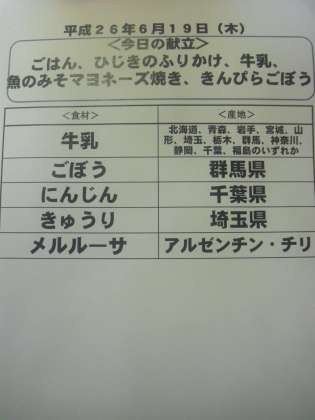 平成26年6月19日（木）
＜今日の献立＞
ごはん、ひじきのふりかけ、牛乳、
魚のみそマヨネーズ焼き、きんぴらごぼう
＜食材＞ ＜産地＞
牛乳 北海道、青森、岩手、宮城、山
形、埼玉、栃木、群馬、神奈川、
静岡、千葉、福島のいずれか
ごぼう 群馬県
にんじん 千葉県
きゅうり 埼玉県
メルルーサ アルゼンチン・チリ